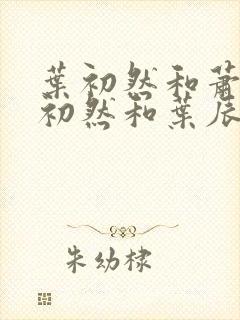 葉初然和蕭
初然和葉辰
朱幼棣